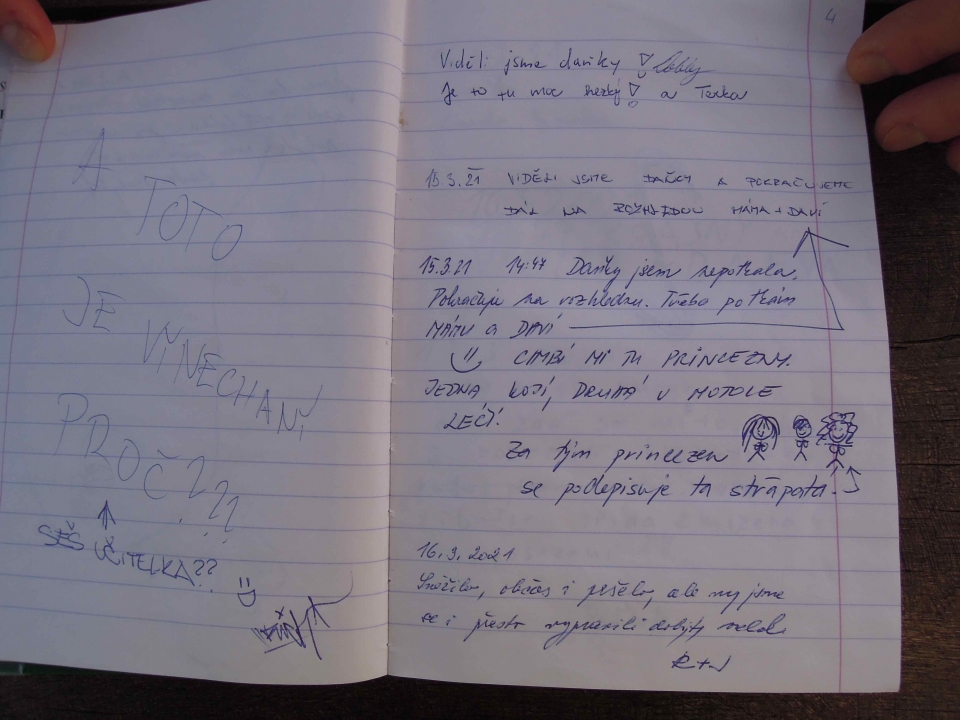 A
TOTO
JE
VYNECHANÍ
PROČ???
UČITELKA??
4
Viděli jsme daňky!
Je to tu moc hezký! a Terka
15.3.21 VIDĚLI JSME DAŇKY A POKRAČUJEME
DÁL NA ROZHLEDNU MÁMA + DAVÍ
15.3.21 14:47 Daňky jsem nepotkala.
Pokračuju na rozhlednu. Třeba potkám
MÁMU a DAVÍ
CHYBÍ MI TU PRINCEZNY.
JEDNA KOJÍ, DRUHÁ V MOTOLE
LÉČÍ.
Za tým princezen
se podepisuje ta strapatá.
16.3.2021
Sněžilo, občas i pršelo, ale my jsme
se i přesto vypravili